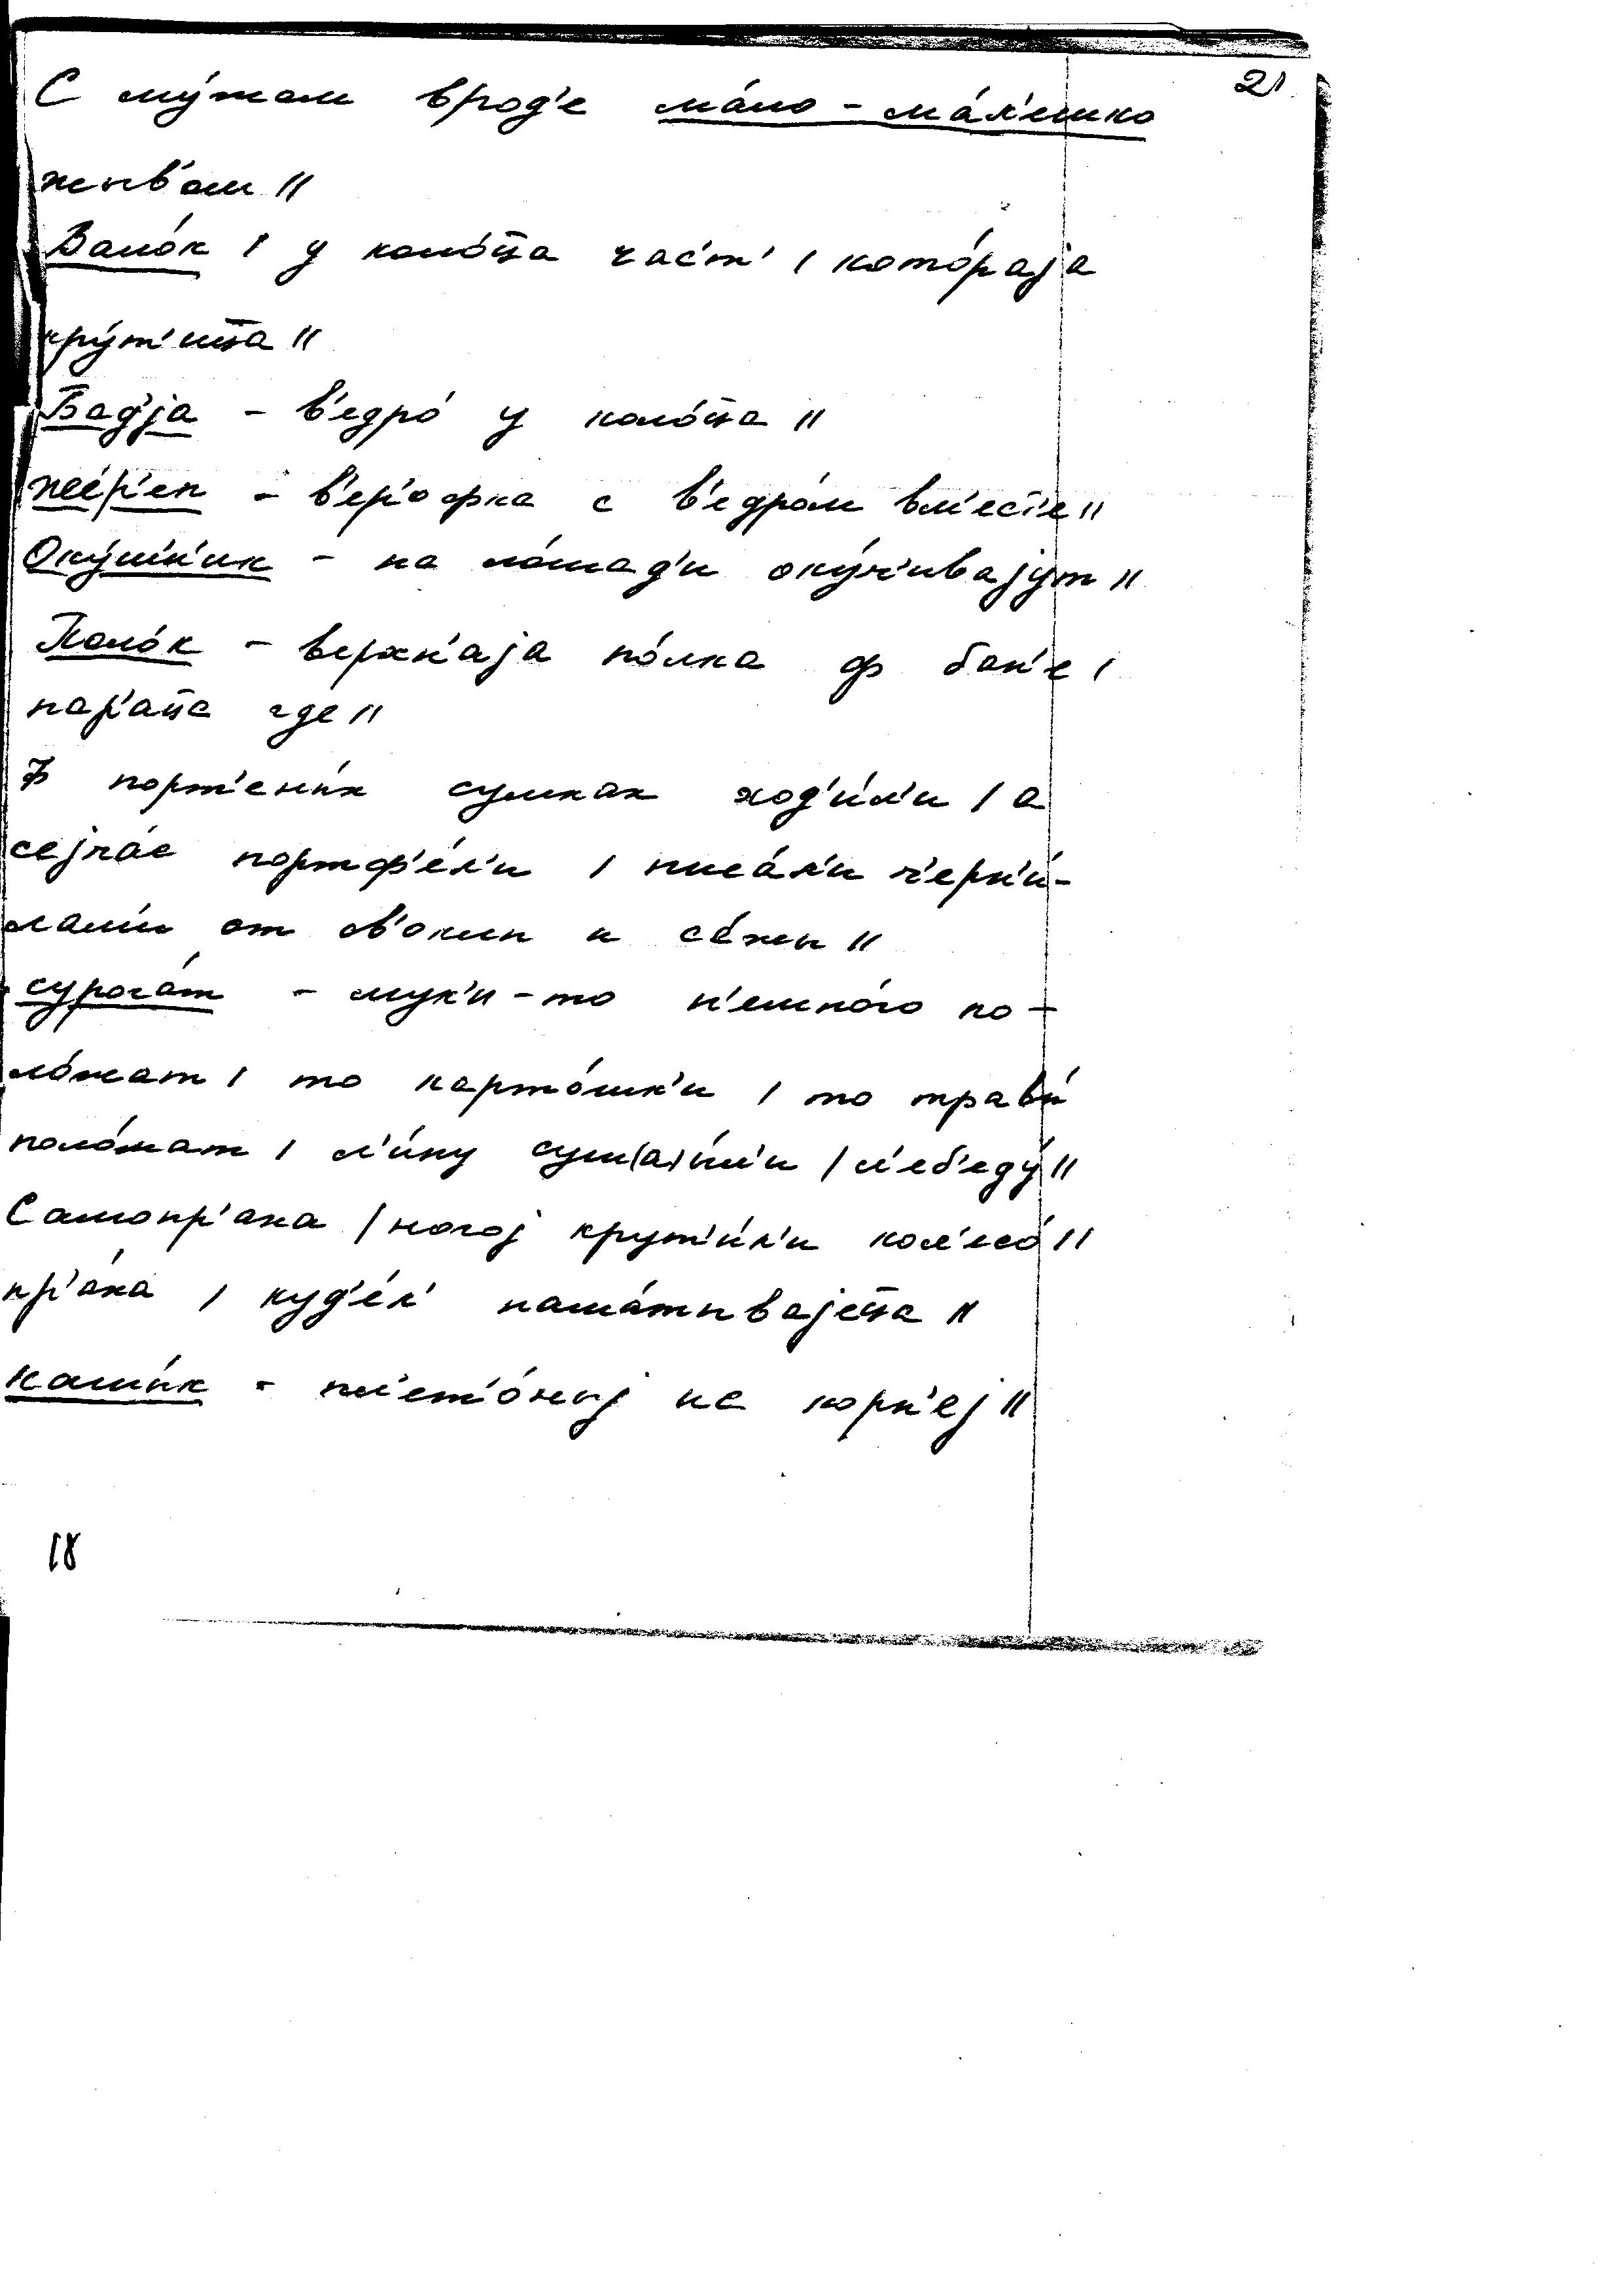 21
С му́жам врод'е ма́ло - ма́л'ешко
жыв'ом //
Вало́к / у коло́ца час'т' / кото́раја
кру́т'ица //
Бад'ја - в'едро́ у коло́ца //
- в'ер'офка с в'едро́м вм'ес'т'е //
Оку́ш'н'ик - на ло́шад'и оку́ч'ивајут //
Поло́к - верхн'аја по́лка ф бан'е /
пар'аца где //
Ф порт'аны́х сумках ход'и́л'и / а
сејча́с портф'е́л'и / писа́л'и ч'ерн'и́-
лами от св'окли и са́жы //
сурога́т - мук'и-то н'емно́го по-
ло́жат / то карто́шк'и / то травы́
поло́жат / л'и́пу суш(а)и́л'и / л'еб'еду́ //
Самопр'аха / ногој крут'и́л'и кол'есо́ //
пр'а́ха / куд'е́л' нама́тываjеца //
- пл'ет'о́ныј из корн'еј //
18